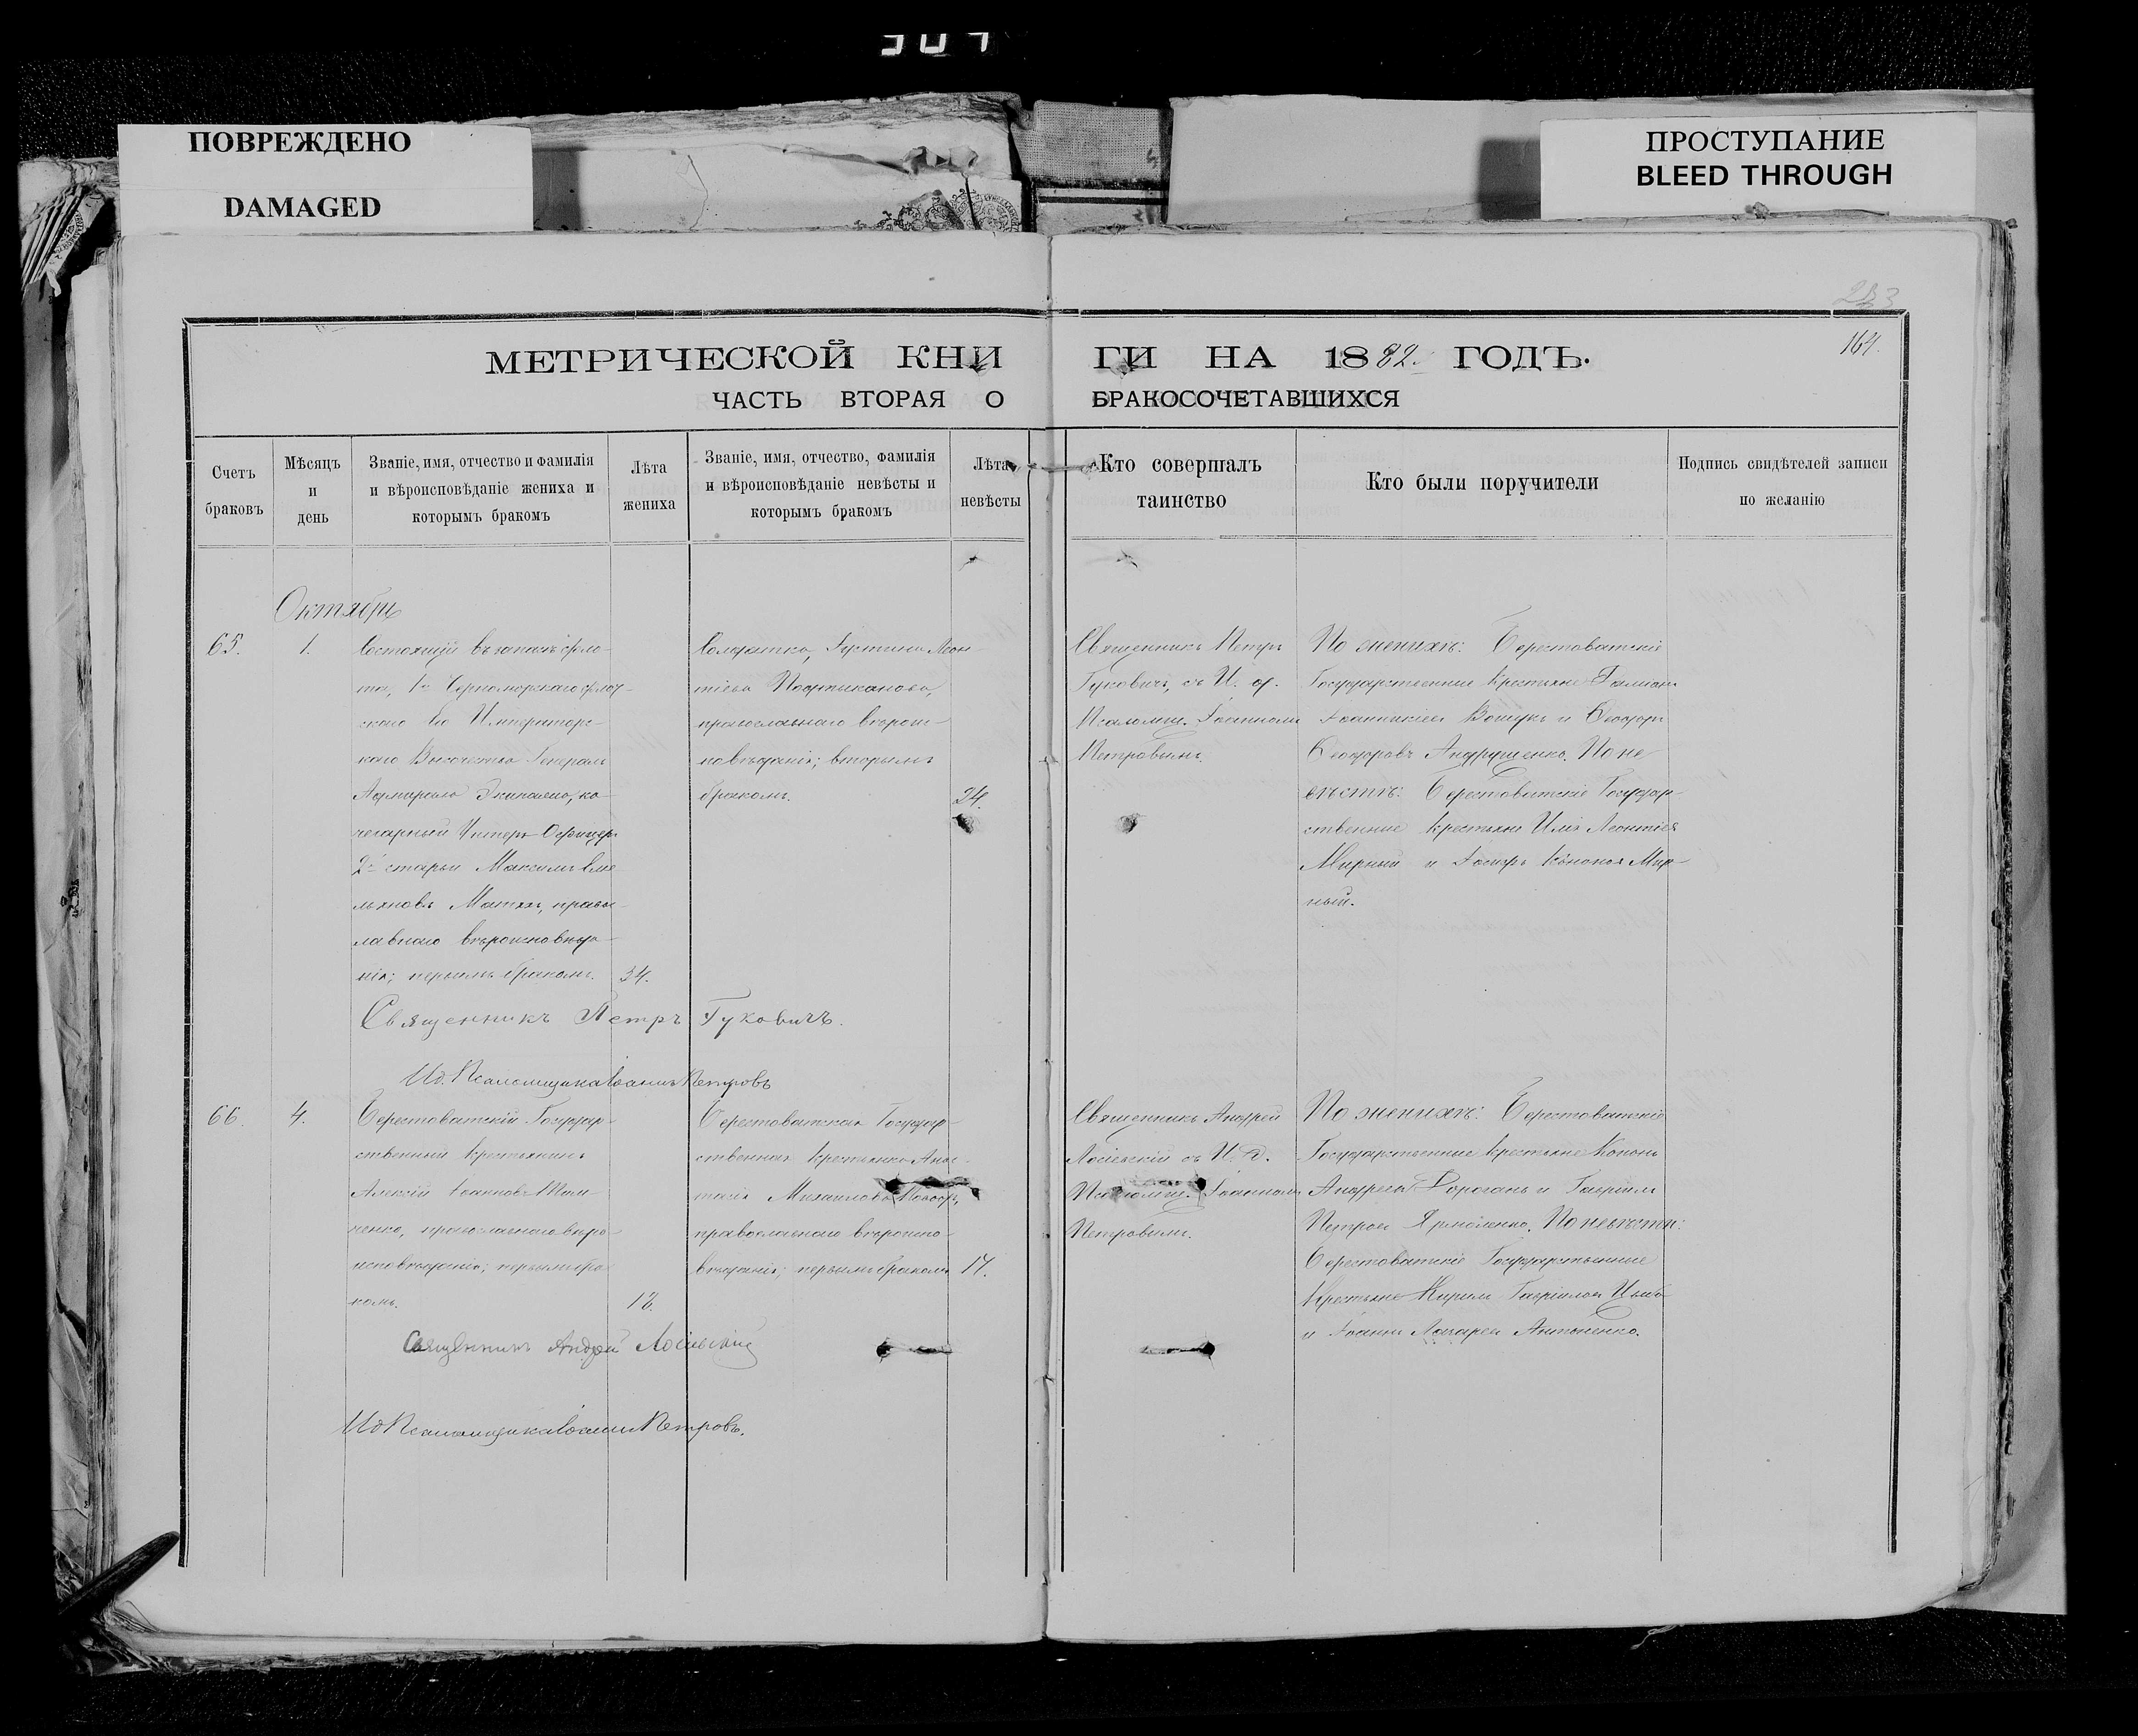 ПОВРЕЖДЕНО
DAMAGED
ПРОСТУПАНИЕ
BLEED THROUGH
164.
МЕТРИЧЕСКОЙ КНИГИ НА 1882. ГОДЪ.
ЧАСТЬ ВТОРАЯ О БРАКОСОЧЕТАВШИХСЯ
Счетъ
браковъ
Мѣсяцъ
и
день
Званіе, имя, отчество и фамилія
и вѣроисповѣданіе жениха и
которымъ бракомъ
Лѣта
жениха
Званіе, имя, отчество, фамилія
и вѣроисповѣданіе невѣсты и
которымъ бракомъ
Лѣта
невѣсты
Кто совершалъ
таинство
Кто были поручители
Подпись свидѣтелей записи
по желанію
Октябрь
65.
1.
Состоящій въ запасѣ фло-
та, 1го Черноморскаго флот-
скаго Его Императорс-
каго Высочества Генерала
Адмирала Экипажа, ко-
чегарный Унтеръ Офицеръ
2й статьи Максимъ Еме-
льяновъ Матяхъ, правос-
лавнаго вѣроисповѣда-
нія; первымъ бракомъ.
34.
Солдатка, Іустина Леон-
тіева
православнаго вѣроис-
повѣданія; вторымъ
бракомъ.
24.
Священникъ Петръ
Гуковичъ, съ И. д.
Псаломщ. Іоанномъ
Петровымъ.
По женихѣ: Берестоватскіе
Государственные крестьяне
Іоанникіевъ и Ѳеодоръ
Ѳеодоровъ Андрущенко. По не
вѣстѣ: Берестоватскіе Государ-
ственные крестьяне Леонтіевъ
Мирный и Кононовъ Мир-
ный.
Священникъ Петръ Гуковичъ.
И.д. Псаломщика Іоаннъ Петровъ
66.
4.
Берестоватскій Государ-
ственный крестьянинъ
Алексій Іоанновъ Том-
ченко, православнаго вѣро-
исповѣданія; первымъ бра-
комъ.
18.
Берестоватская Государ-
ственная крестьянка Анас-
тасія Михаилова
православнаго вѣроиспо-
вѣданія; первымъ бракомъ
17.
Священникъ Андрей
Лосіевскій съ И. д.
Псаломщ. Іоанномъ
Петровымъ.
По женихѣ: Берестоватскіе
Государственные крестьяне Кононъ
Андреевъ Дорогань и Гавріилъ
Петровъ Ярмоленко. По невѣстѣ:
Берестоватскіе Государственные
крестьяне Кирилъ Гавріиловъ
и Іоаннъ Антоненко.
Священникъ Андрей Лосіевскій
И.д. Псаломщика Іоаннъ Петровъ.